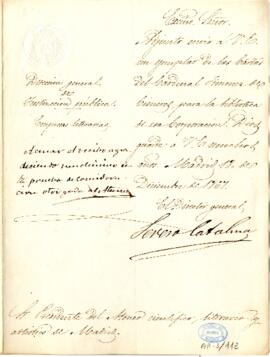 Excmo. Señor.
Adjunto envio á V. E.
un ejemplar de las Cartas
del Cardenal Jimenez de
Cisneros, para la biblioteca
de esa Corporacion. Dios
guarde á V. E. muchos
años. Madrid de
Diciembre de 1867.
El Director general,
Severo Catalina
Direccion general
de
Instruccion pública.
Empresas literarias.
Acusar el recibo agra
deciendo
ta prueba de consider
acion al Ateneo
Sr. Presidente del Ateneo científico, literario y
artístico de Madrid.